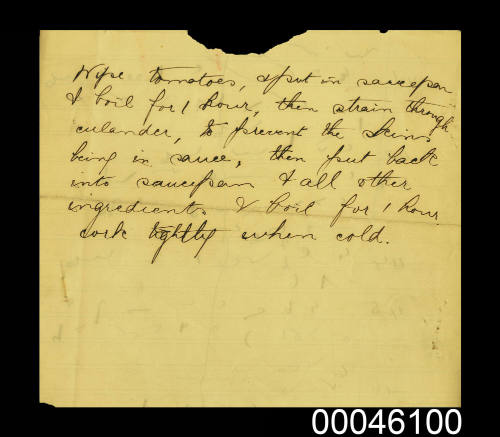 Wipe tomatoes, & put in saucepan
& boil for 1 hour, then strain through
culander, to prevent the skins
being in sauce, then put back
into saucepan & all other
ingredients & boil for 1 hour
cork tightly when cold.
00046100